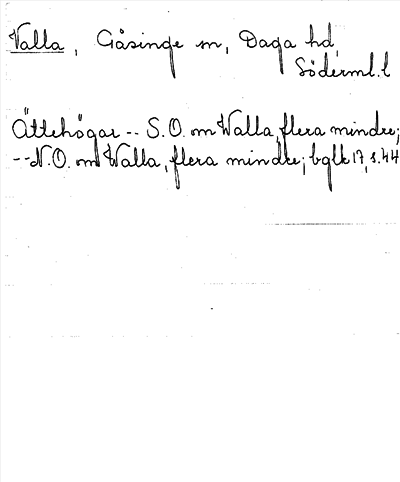 Valla, Gåsinge sn, Daga hd,
Söderml. l
Ättehögar -- S.O. om Walla, flera mindre;
-- N.O. om Walla, flera mindre; bglk 17, s. 44